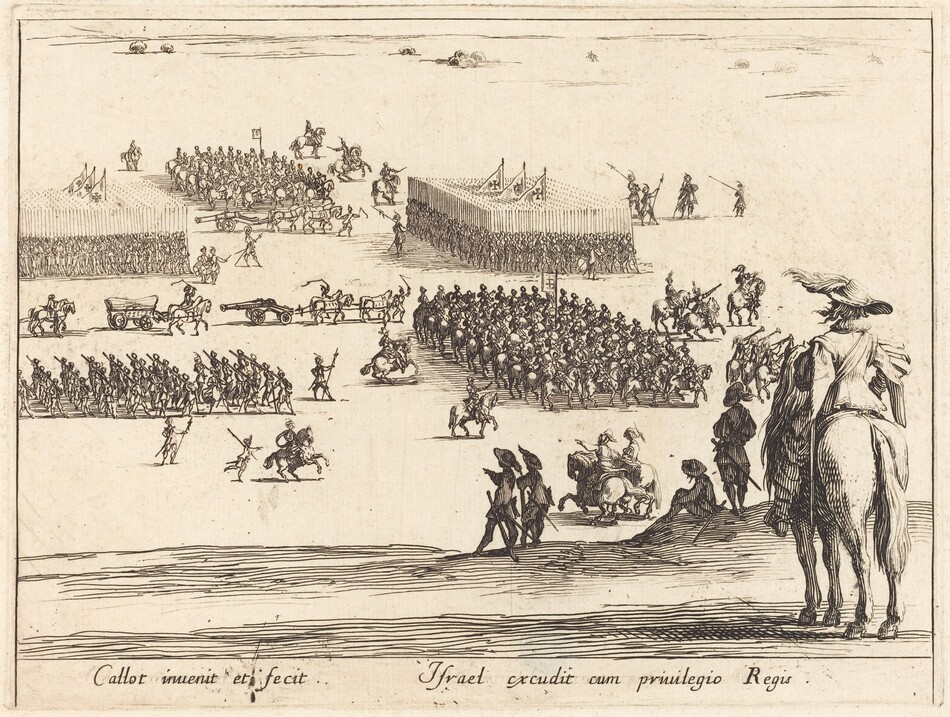 Callot inuenit et fecit .. Israel excudit cum priuilegio Regis .